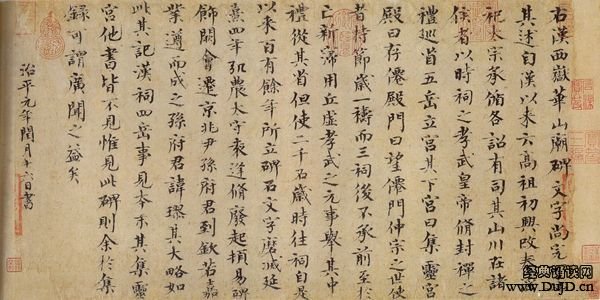 右漢西嶽華山廟碑文字尚完
其述自漢以來云高祖初興改秦
祀太宗承循各詔有司其山川在諸
侯者以時祠之孝武皇帝脩封禪之
禮巡省五岳立宮其下宮曰集靈宮
殿曰存僊殿門曰望僊門仲宗之世使
者持節歲一禱而三祠後不承前至於
亡新寖用丘虛孝武之元事舉其中
禮從其省但使二千石歲時往祠自是
以來百有餘年所立碑石文字磨滅延
熹四年弘農太守袁逢脩廢起頓易碑
飾闕會遷京兆尹孫府君到欽若嘉
業遵而成之孫府君諱璆其大略如
此其記漢祠四岳事見本末其集靈
宮他書皆不見惟見此碑則余於集
錄可謂廣聞之益矣
治平元年閏月十六日書
经典诵读网
www.DuJD.cn